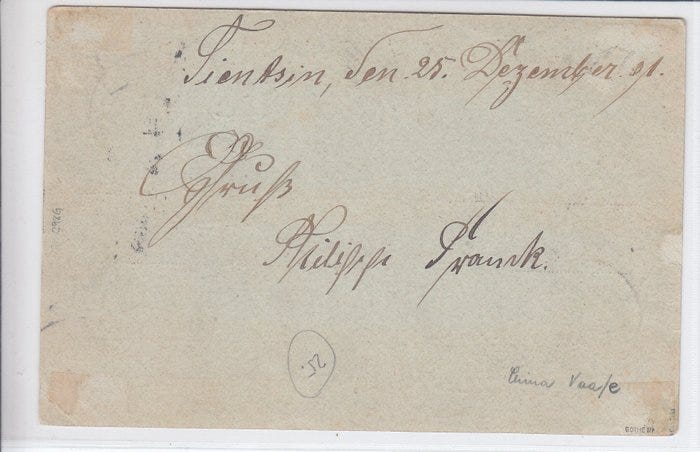 Tientsin, den 25. Dezember 01.
Gruß
Philipp Franck.
52
China Vaa/e
2926